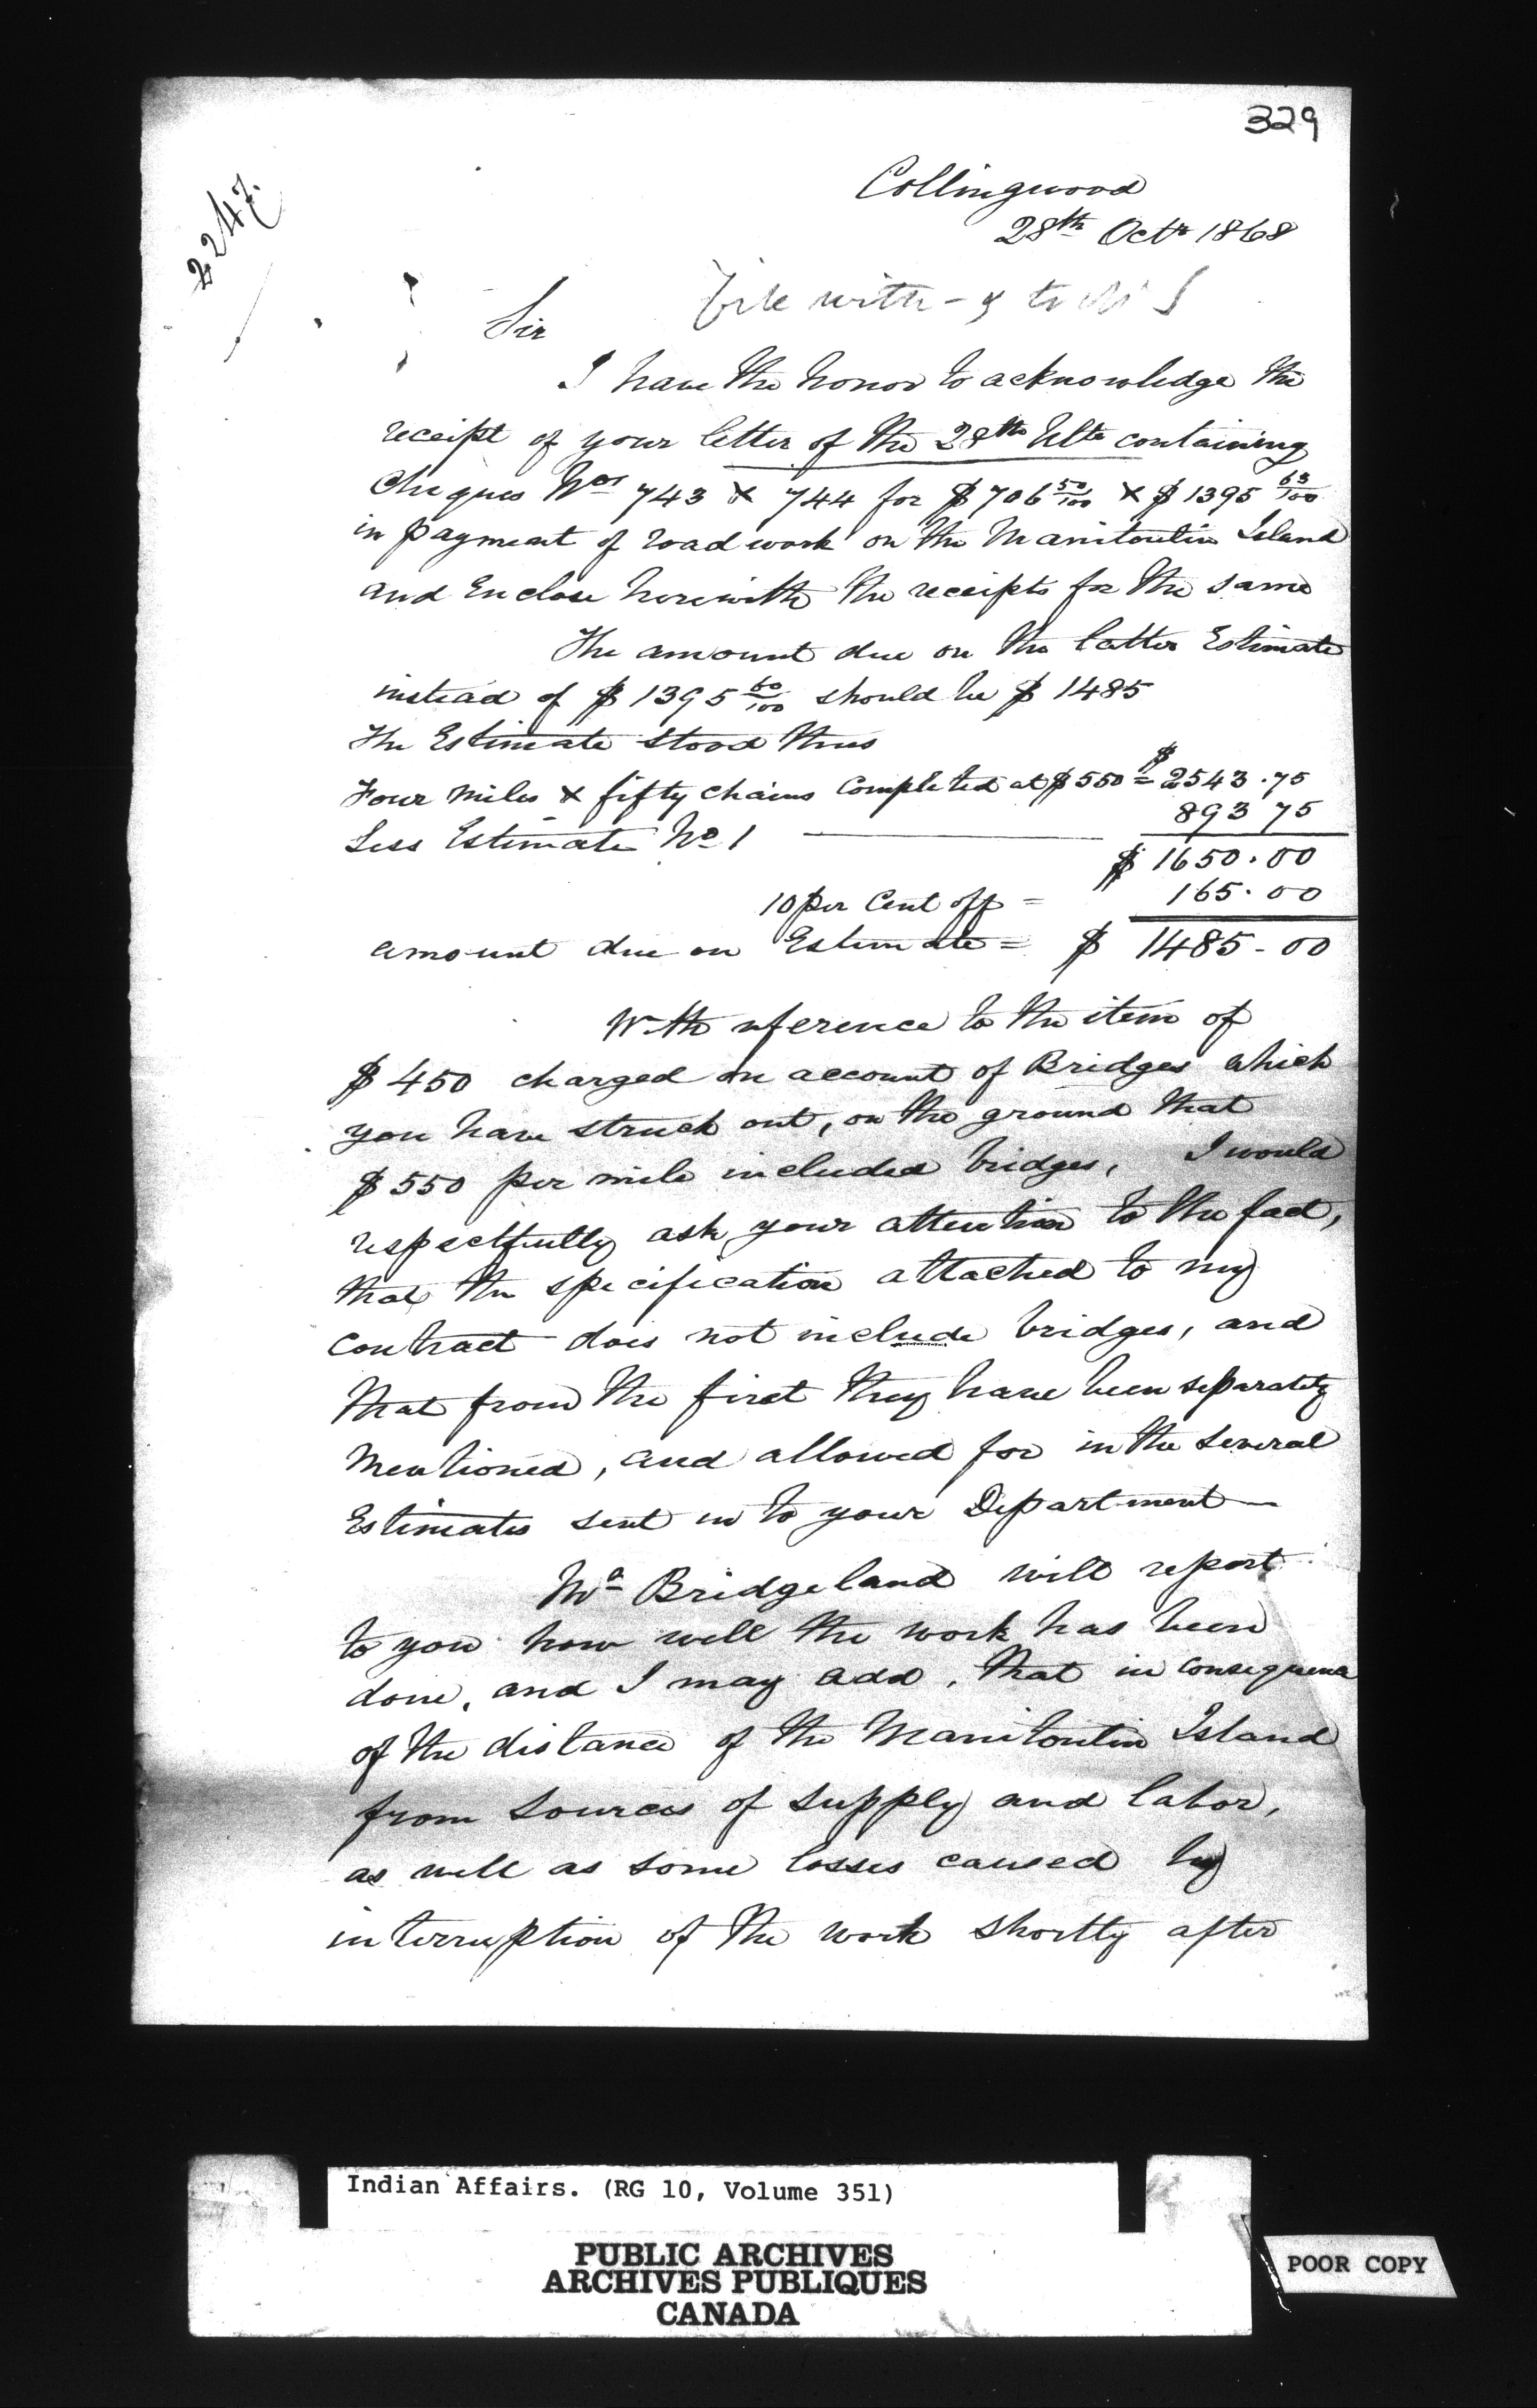 329
2247.
Collingwood
28th Octr 1868
File with - & to
Sir
I have the honor to acknowledge the
receipt of your letter of the 28th Ulto containing
Cheques Nos 743 & 744 for $706 50/100 & $1395 63/100
in payment of road work on the Manitoulin Island
and Enclose herewith the receipts for the same
The amount due on the latter Estimate
instead of $1395 60/100 should be $1485
The Estimate stood thus
Four miles & fifty chains Completed at $550 = $2543.75
Less Estimate No 1 893 75
$1650.00
10 per Cent off = 165.00
amount due on Estimate = $1485-00
With reference to the item of
$450 charged on account of Bridges which
you have struck out, on the ground that
$550 per mile included bridges, I would
respectfully ask your attention to the fact,
that the specification attached to my
contract does not include bridges, and
that from the first they have been separately
mentioned, and allowed for in the several
Estimates sent in to your Department
Mr Bridgeland will report
to you how well the work has been
done, and I may add, that in consequence
of the distance of the Manitoulin Island
from sources of supply and labor,
as well as some losses caused by
interruption of the work shortly after
Indian Affairs. (RG 10, Volume 351)
PUBLIC ARCHIVES
ARCHIVES PUBLIQUES
CANADA
POOR COPY